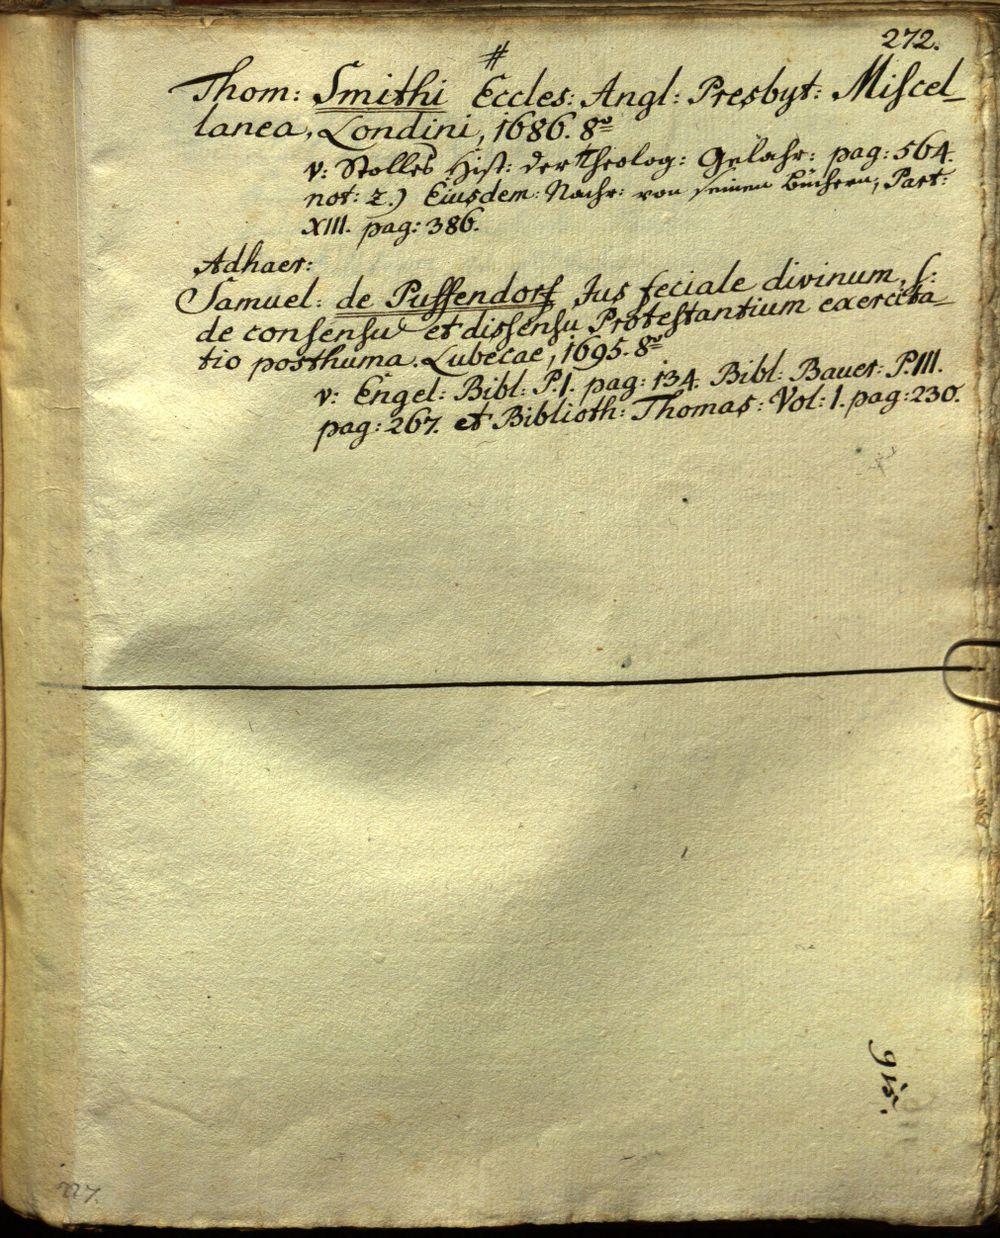 272.
#
Thom: Smithi Eccles: Angl: Presbyt: Miſcel_
lanea, Londini, 1686. 8º
v: Stolles Hist: der Theolog: Gelahr: pag: 564.
not: z.) Eiusdem: Nachr: von seinen Büchern, Part:
XIII. pag: 386.
Adhaer:
Samuel: de Puffendorf Jus feciale divinum, ſ:
de conſenſu et disſenſu Proteſtantium exercita_
tio posthuma. Lubecae, 1695. 8º
v: Engel: Bibl: P.I. pag: 134. Bibl: Bauer: P.III.
pag: 267. et Biblioth: Thomas: Vol: I. pag: 230.
227.